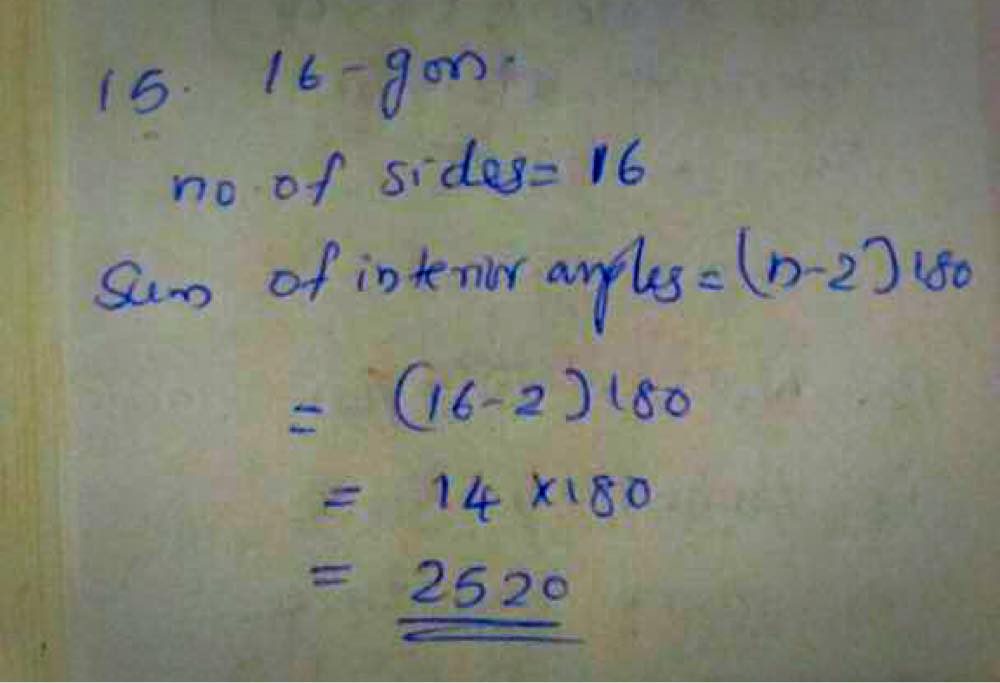 15. 16-gon.
no. of sides = 16
Sum of interior angles = (n-2)180
= (16-2)180
= 14 × 180
= 2520